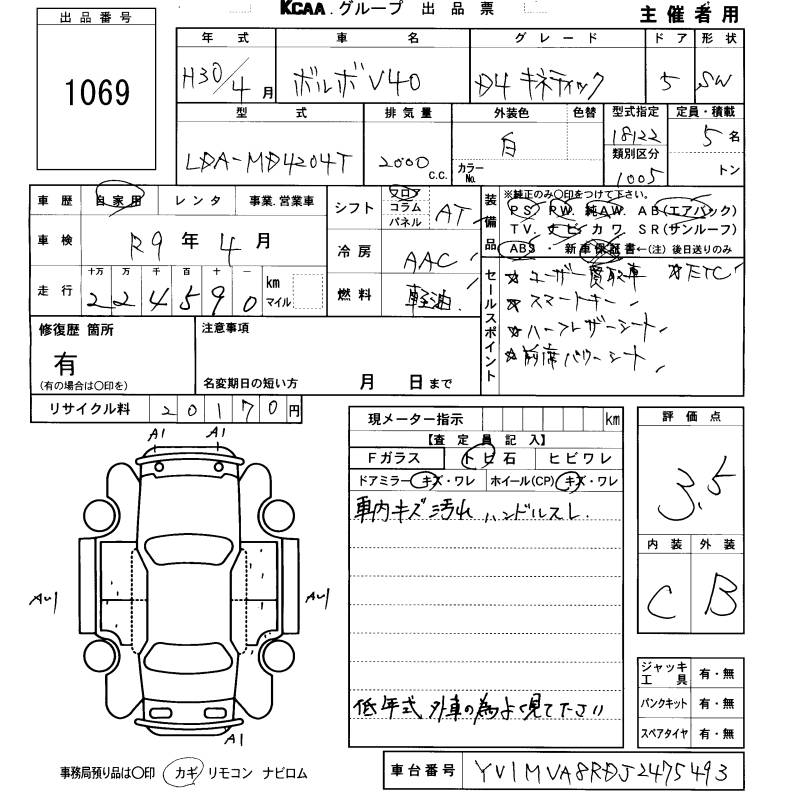 KCAA.グループ 出品票 主催者用
出品番号
1069
年式 車名 グレード ドア 形状
H30/4月 ボルボV40 D4 キネティック 5 SW
型式 排気量 外装色 色替 型式指定 定員・積載
LDA-MD4204T 2000 C.C. 白 カラーNo. 18122 5名
類別区分
1005 トン
車歴 自家用 レンタ 事業.営業車
車検 R9年4月
走行 十万 万 千 百 十 一
224590 km マイル
シフト フロア コラム パネル AT
冷房 AAC
燃料 軽油
装備品 ※純正のみ〇印をつけて下さい。
PS. PW. 純AW. AB(エアバック)
TV. ナビ. カワ. SR(サンルーフ)
ABS. 新車保証書←(注)後日送りのみ
セールスポイント
☆ユーザー買取車 ☆ETC
☆スマートキー
☆ハーフレザーシート
☆前席パワーシート
修復歴 箇所 注意事項
有
(有の場合は〇印を) 名変期日の短い方 月 日まで
リサイクル料 20170円
現メーター指示 km
【査定員記入】
Fガラス トビ石 ヒビワレ
ドアミラー キズ・ワレ ホイール(CP) キズ・ワレ
車内キズ 汚れ ハンドルスレ.
低年式 外車の為よく見て下さい
評価点
3.5
内装 外装
C B
ジャッキ工具 有・無
パンクキット 有・無
スペアタイヤ 有・無
A1 A1
AW1 AW1
A1
事務局預り品は〇印 カギ リモコン ナビロム
車台番号 YV1MVA8RDJ2475493